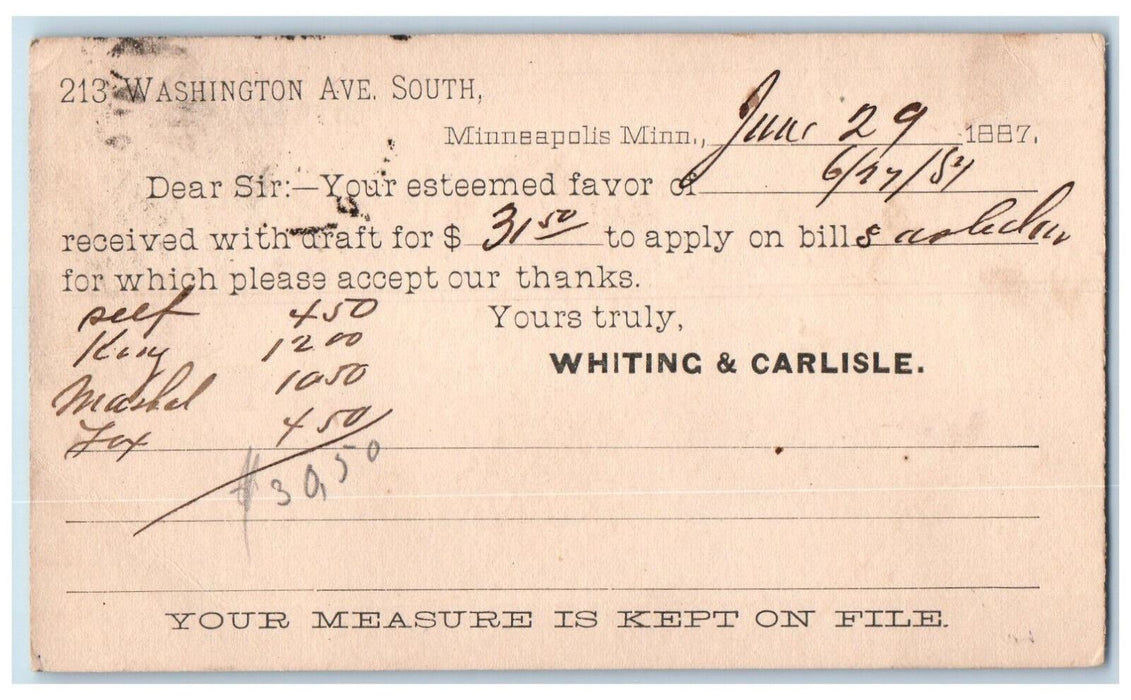 213 WASHINGTON AVE. SOUTH,
Minneapolis Minn., June 29 1887.
Dear Sir:—Your esteemed favor of 6/27/87
received with draft for $ 31 50 to apply on bills as below
for which please accept our thanks.
Yours truly,
WHITING & CARLISLE.
self 450
King 1200
1050
Fox 450
$30,50
YOUR MEASURE IS KEPT ON FILE.